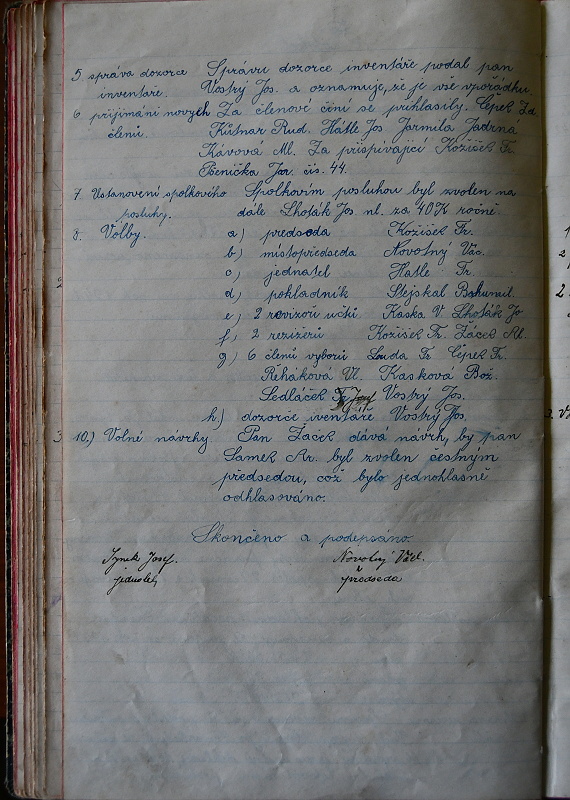 5 správa dozorce Správu dozorce inventáře podal pan
inventáře. Vostrý Jos. a oznamuje, že je vše vpořádku
6 přijímání nových Za členové činí se přihlasily. Čépek Zd.
členů. Kišnar Rud. Hátle Jos Jarmila Jadrná
Kávová Ml. Za přispívající Kožíšek Fr.
Pšenička Jar. čís. 44.
7 Ustanovení spolkového Spolkovím posluhou byl zvolen na
posluhy. dále Lhoťák Jos ml. za 40K ročně.
8. Volby. a) předseda Kožíšek Fr.
b) místopředseda Novotný Vác.
c) jednatel Hátle Fr.
d) pokladník Stejskal Bohumil.
e) 2 revizoři účtů Kaska V. Lhoťák Jo
f) 2 režizérů Kožíšek Fr. Žáček Al.
g) 6 členů výborů Louda Fr Čépek Fr.
Řeháková Vl. Kasková Bož.
Sedláček Vostrý Jos.
h) dozorce iventáře Vostrý Jos.
10.) Volné návrhy Pan Žáček dává návrh, by pan
Samek Ar. byl zvolen čestným
předsedou, což bylo jednohlasně
odhlasováno.
Skončeno a podepsáno.
Synek Josef. Novotný Václ.
jednatel předseda